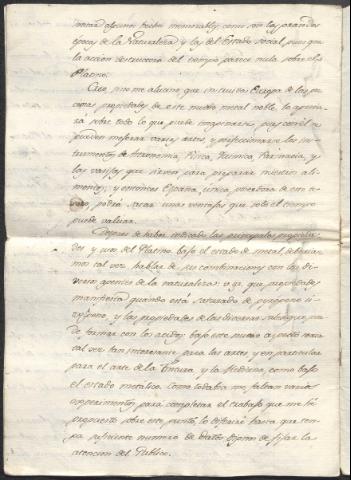 notar algunos hechos memorables como son las grandes
épocas de la Naturaleza y las del Estado social, pues que
la accion destructora del tiempo parece nula sobre el
Platino.
Creo, sino me alucino, que instruida Europa de las pre-
ciosas propiedades de este nuevo metal noble, lo aprecia-
rá sobre todo lo que puede imaginarse, pues con él se
pueden mejorar varias artes, y perfeccionarse los ins-
trumentos de Astronomia, Fisica, Quimica, Farmacia, y
las vasijas que sirven para preparar nuestros ali-
mentos; y entonces España, unica poseedora de este te-
soro, podrá sacar unas ventajas que solo el tiempo
puede valuar.
Despues de haber indicado las principales propieda-
des y usos del Platino bajo el estado de metal, deberia-
mos tal vez hablar de sus combinaciones con los di-
versos agentes de la naturaleza: ya que propiedades
manifiesta quando está saturado de principio o-
xigeno, y las propiedades de las diversas sales que pue-
de formar con los acidos; bajo este nuevo aspecto será
tal vez tan interesante para las artes, y en particular
para el arte de la Tintura y la Medicina, como bajo
el estado metalico. Como todavia me faltan varios
experimentos para completar el trabajo que me he
propuesto sobre este punto, lo diferiré hasta que ten-
ga suficiente numero de datos dignos de fijar la
atencion del Publico.